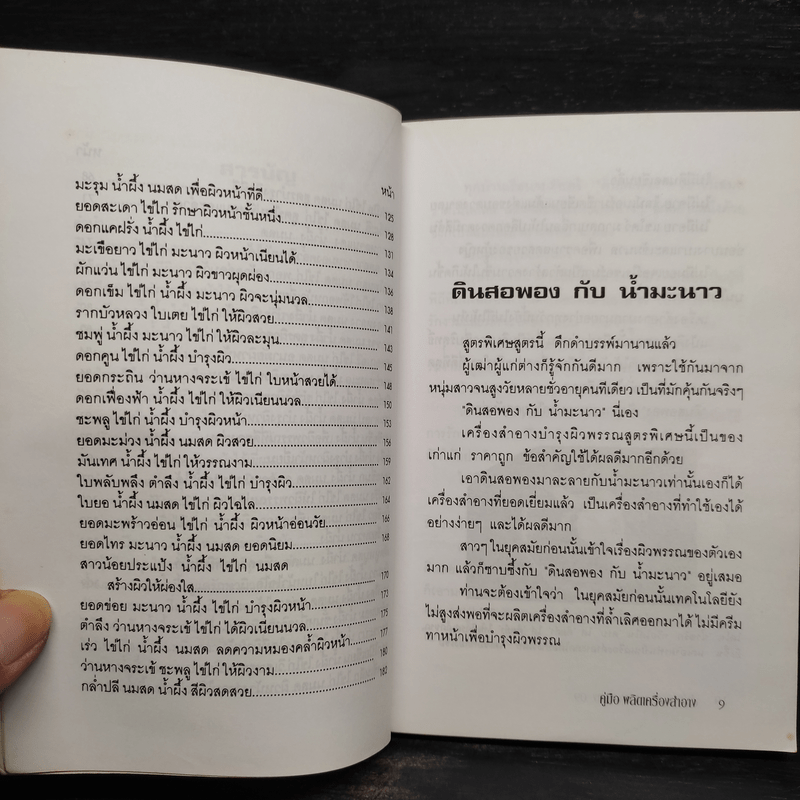 หน้า
มะรุม น้ำผึ้ง นมสด เพื่อผิวหน้าที่ดี..............................125
ยอดสะเดา ไข่ไก่ รักษาผิวหน้าชั้นหนึ่ง..............................128
ดอกแคฝรั่ง น้ำผึ้ง ไข่ไก่..............................131
มะเขือยาว ไข่ไก่ มะนาว ผิวหน้าเนียนได้..............................134
ผักแว่น ไข่ไก่ มะนาว ผิวขาวผุดผ่อง..............................136
ดอกเข็ม ไข่ไก่ น้ำผึ้ง มะนาว ผิวจะนุ่มนวล..............................138
รากบัวหลวง ใบเตย ไข่ไก่ ให้ผิวสวย..............................141
ชมพู่ น้ำผึ้ง มะนาว ไข่ไก่ ให้ผิวละมุน..............................143
ดอกคูน ไข่ไก่ น้ำผึ้ง บำรุงผิว..............................145
ยอดกระถิน ว่านหางจระเข้ ไข่ไก่ ใบหน้าสวยได้..............................148
ดอกเฟื่องฟ้า น้ำผึ้ง ไข่ไก่ ให้ผิวเนียนนวล..............................150
ชะพลู ไข่ไก่ น้ำผึ้ง บำรุงผิวหน้า..............................153
ยอดมะม่วง น้ำผึ้ง นมสด ผิวสวย..............................156
มันเทศ น้ำผึ้ง ไข่ไก่ ให้วรรณงาม..............................159
ใบพลับพลึง ตำลึง น้ำผึ้ง ไข่ไก่ บำรุงผิว..............................162
ใบยอ น้ำผึ้ง นมสด ไข่ไก่ ผิวไฉไล..............................164
ยอดมะพร้าวอ่อน ไข่ไก่ น้ำผึ้ง ผิวหน้าอ่อนวัย..............................166
ยอดไทร มะนาว น้ำผึ้ง นมสด ยอดนิยม..............................168
สาวน้อยประแป้ง น้ำผึ้ง ไข่ไก่ นมสด
สร้างผิวให้ผ่องใส..............................170
ยอดข่อย มะนาว น้ำผึ้ง ไข่ไก่ บำรุงผิวหน้า..............................173
ตำลึง ว่านหางจระเข้ ไข่ไก่ ได้ผิวเนียนนวล..............................177
เร่ว ไข่ไก่ น้ำผึ้ง นมสด ลดความหมองคล้ำผิวหน้า..............................180
ว่านหางจระเข้ ชะพลู ไข่ไก่ ให้ผิวงาม..............................182
กล่ำปลี นมสด น้ำผึ้ง สีผิวสดสวย..............................
ดินสอพอง กับ น้ำมะนาว
สูตรพิเศษสูตรนี้ ดึกดำบรรพ์มานานแล้ว
ผู้เฒ่าผู้แก่ต่างก็รู้จักกันดีมาก เพราะใช้กันมาจาก
หนุ่มสาวจนสูงวัยหลายชั่วอายุคนทีเดียว เป็นที่มักคุ้นกันจริงๆ
"ดินสอพอง กับ น้ำมะนาว" นี่เอง
เครื่องสำอางบำรุงผิวพรรณสูตรพิเศษนี้เป็นของ
เก่าแก่ ราคาถูก ข้อสำคัญใช้ได้ผลดีมากอีกด้วย
เอาดินสอพองมาละลายกับน้ำมะนาวเท่านั้นเองก็ได้
เครื่องสำอางที่ยอดเยี่ยมแล้ว เป็นเครื่องสำอางที่ทำใช้เองได้
อย่างง่ายๆ และได้ผลดีมาก
สาวๆ ในยุคสมัยก่อนนั้นเข้าใจเรื่องผิวพรรณของตัวเอง
มาก แล้วก็ซาบซึ้งกับ "ดินสอพอง กับ น้ำมะนาว" อยู่เสมอ
ท่านจะต้องเข้าใจว่า ในยุคสมัยก่อนนั้นเทคโนโลยียัง
ไม่สูงส่งพอที่จะผลิตเครื่องสำอางที่ล้ำเลิศออกมาได้ ไม่มีครีม
ทาหน้าเพื่อบำรุงผิวพรรณ
คู่มือ ผลิตเครื่องสำอาง 9